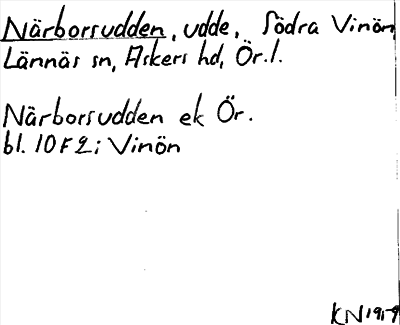 Närborsudden, udde, Södra Vinön
Lännäs sn, Askers hd, Ör.l.
Närborsudden ek Ör.
bl. 10 F 2 i Vinön
KN